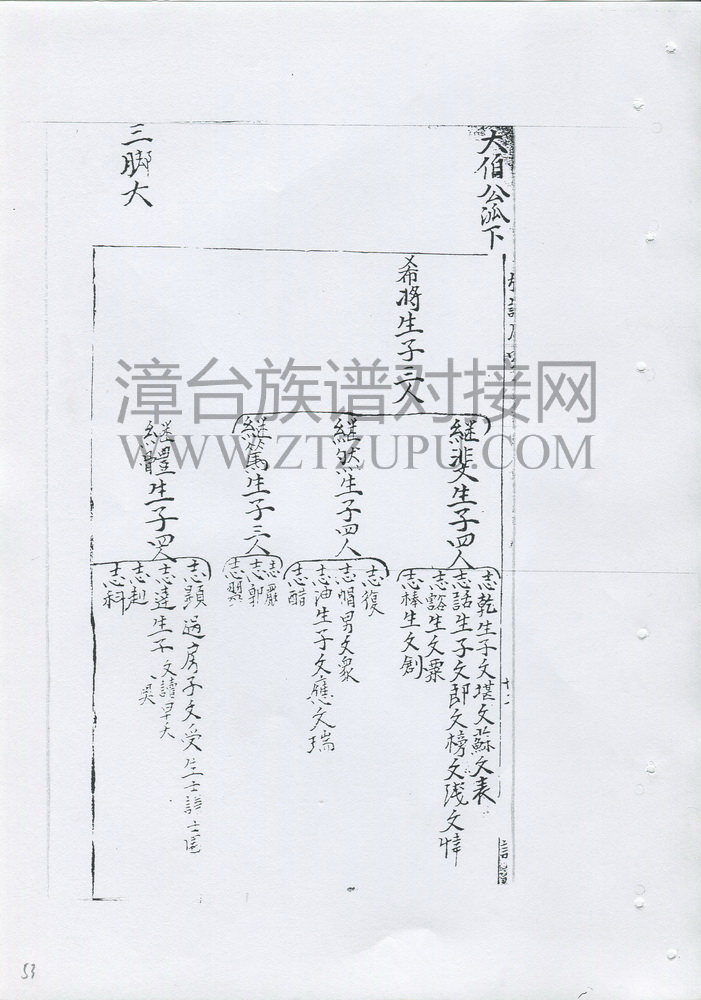 大伯公派下
希將生子三人
継斐生子四人
志乾生子文堪文蘇文表
志話生子文郎文榜文淺文悻
志豁生文粟
志棒生文創
継然生子四人
志復
志帽男文眾
志油生子文應文瑞
志醋
継篤生子三人
志嚴
志郭
継體生子四人
志顕過房子文受生士諳士尾
志達生子文讀早夭
志赳
志科
三脚大
漳台族谱对接网
WWW.ZTZUPU.COM
53